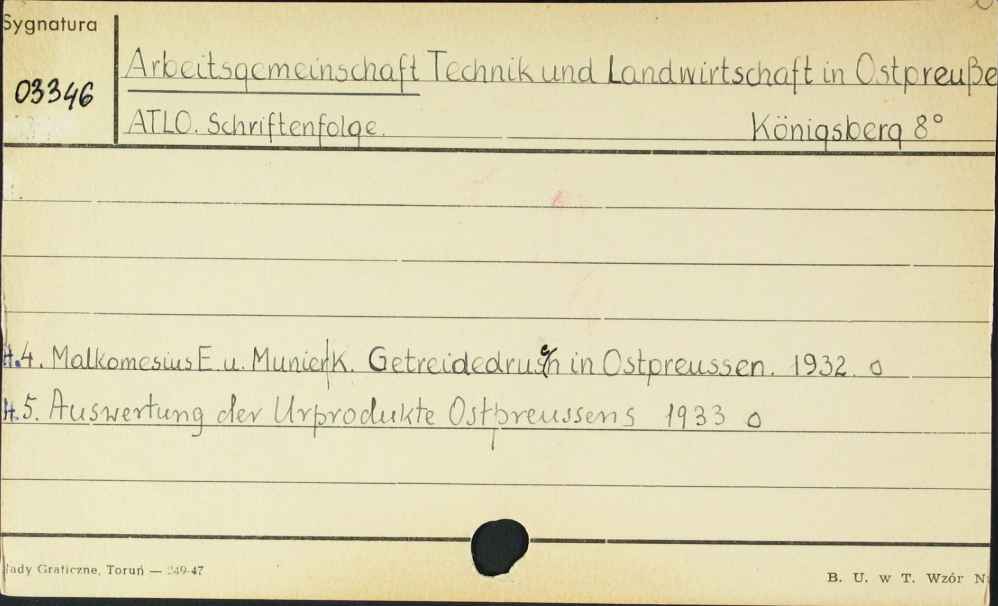 Sygnatura
03346
Arbeitsgemeinschaft Technik und Landwirtschaft in Ostpreuße
ATLO. Schriftenfolge. Königsberg 8°
H.4. Malkomesius E u. Munier K. Getreidedrusch in Ostpreussen. 1932. o
H.5. Auswertung der Urprodukte Ostpreussens 1933 o
łady Graficzne, Toruń — 249-47
B. U. w T. Wzór N